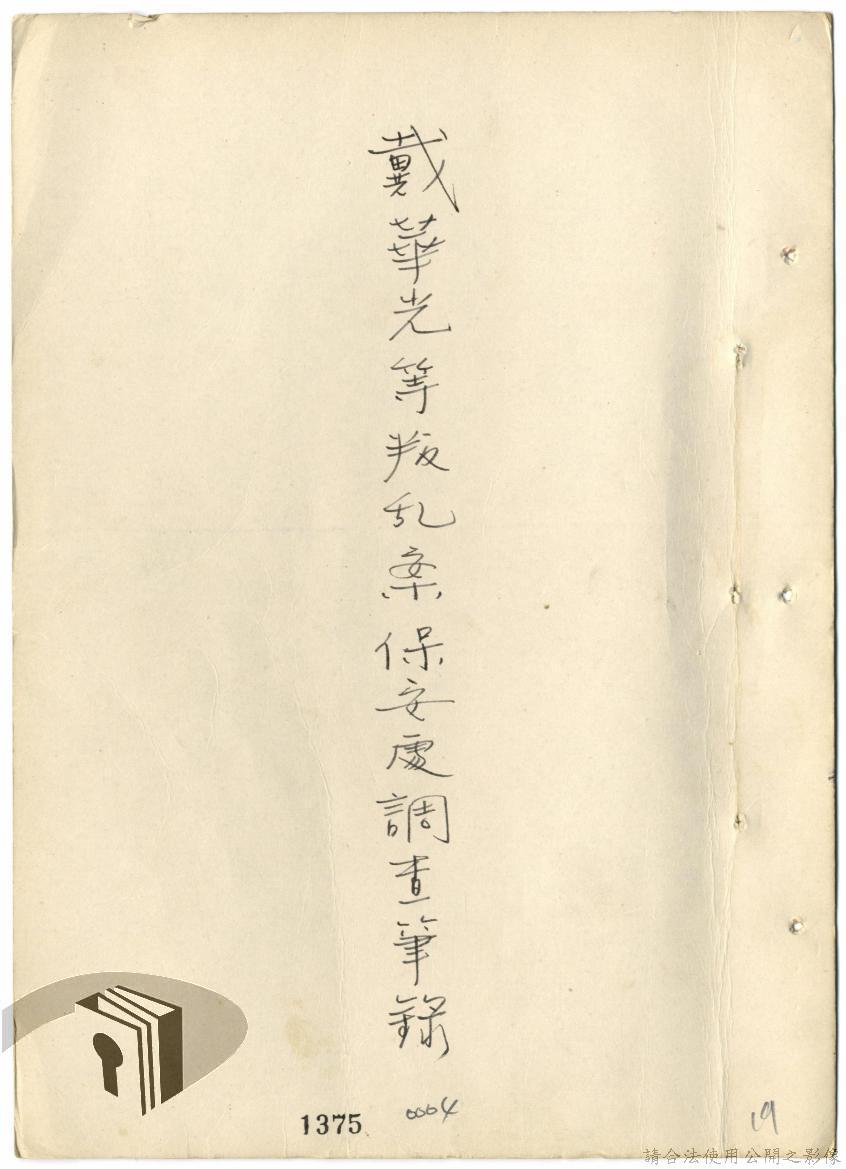 戴華光等叛乱案保安處調查筆錄
1375
0004
19
請合法使用公開之影像